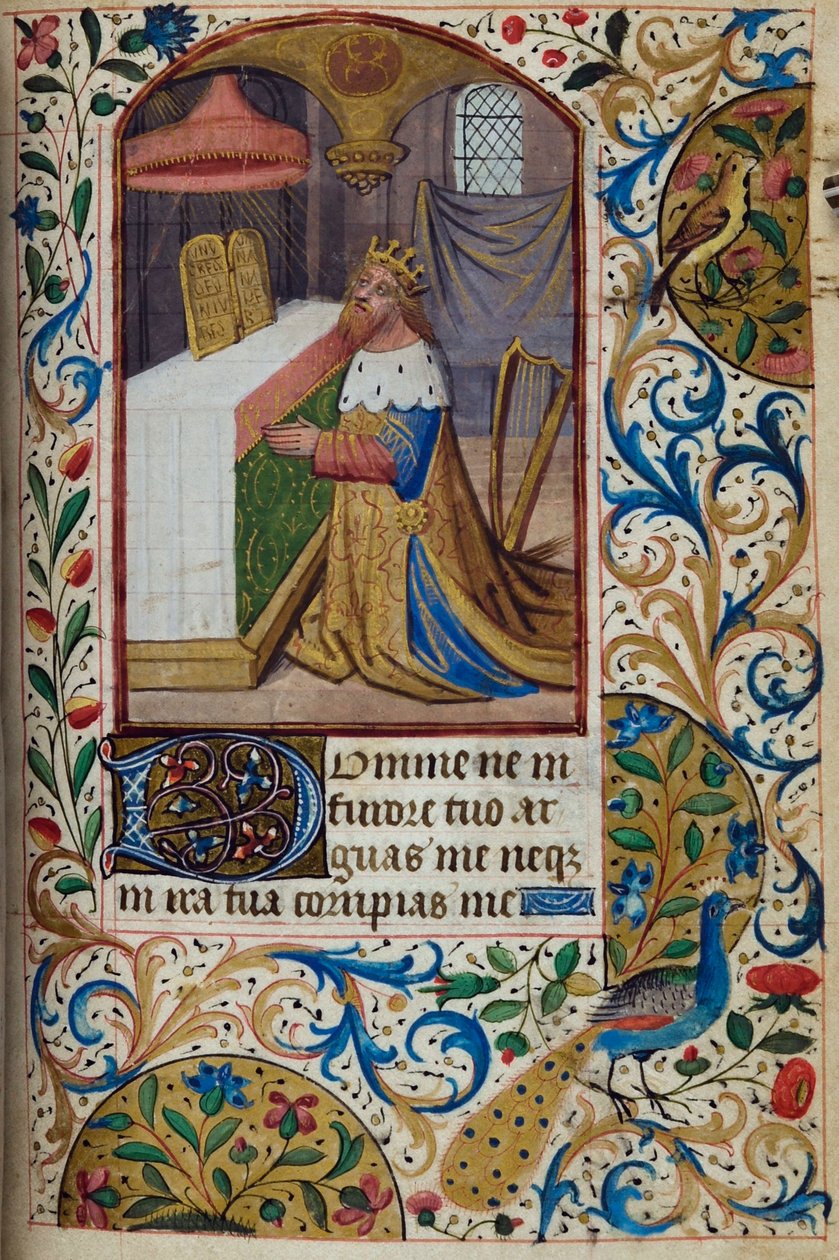 Domine ne in
furore tuo ar
guas me neqz
in ira tua corripias me